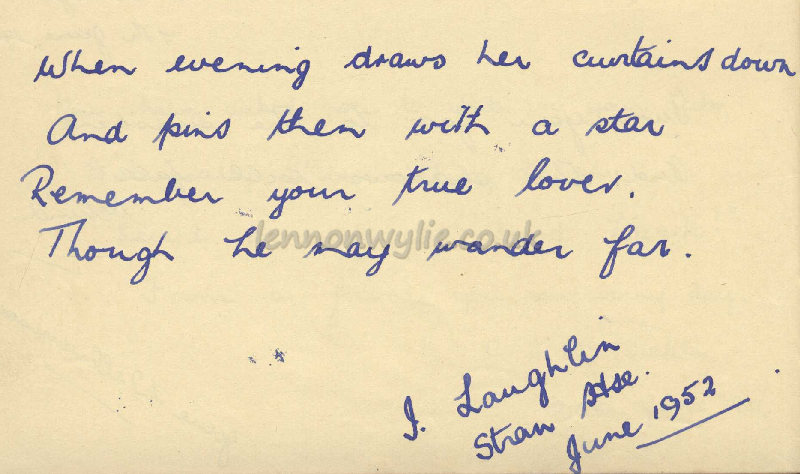 When evening draws her curtains down
And pins them with a star
Remember your true lover.
Though he may wander far.
lennonwylie.co.uk
I. Laughlin
Stran Hse.
June 1952